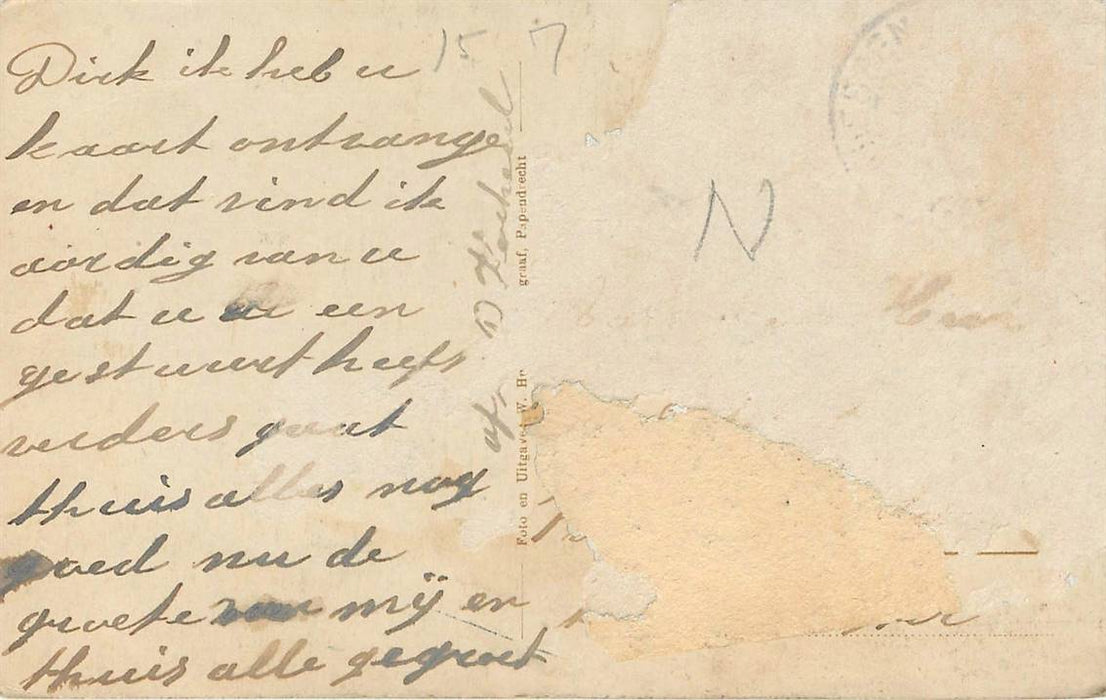 15 7
Dirk ik heb u
kaart ontvange
en dat vind ik
aardig van u
dat u een
gestuurt heefs
verders gaat
thuis alles nog
goed nu de
groete van mÿ en
thuis alle gegroet
afz D
Foto en Uitgave W. H
graaf, Papendrecht
N